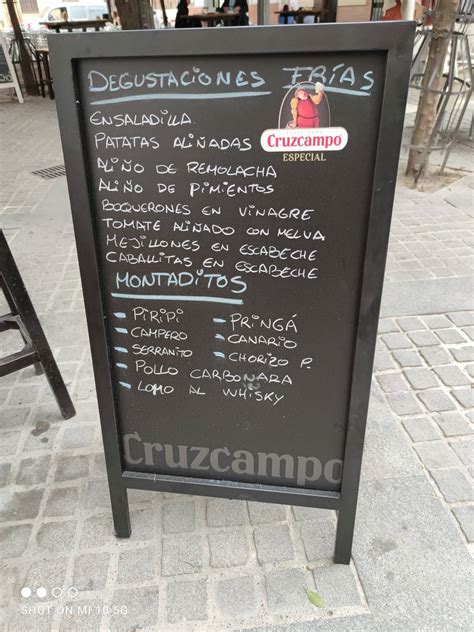 DEGUSTACIONES FRÍAS
ENSALADILLA
PATATAS ALIÑADAS
Cruzcampo
ESPECIAL
ALIÑO DE REMOLACHA
ALIÑO DE PIMIENTOS
BOQUERONES EN VINAGRE
TOMATE ALIÑADO CON MELVA
MEJILLONES EN ESCABECHE
CABALLITAS EN ESCABECHE
MONTADITOS
- PIRIPI - PRINGÁ
- CAMPERO - CANARIO
- SERRANITO - CHORIZO P.
- POLLO CARBONARA
- LOMO AL WHISKY
Cruzcampo
SHOT ON MI 10 5G